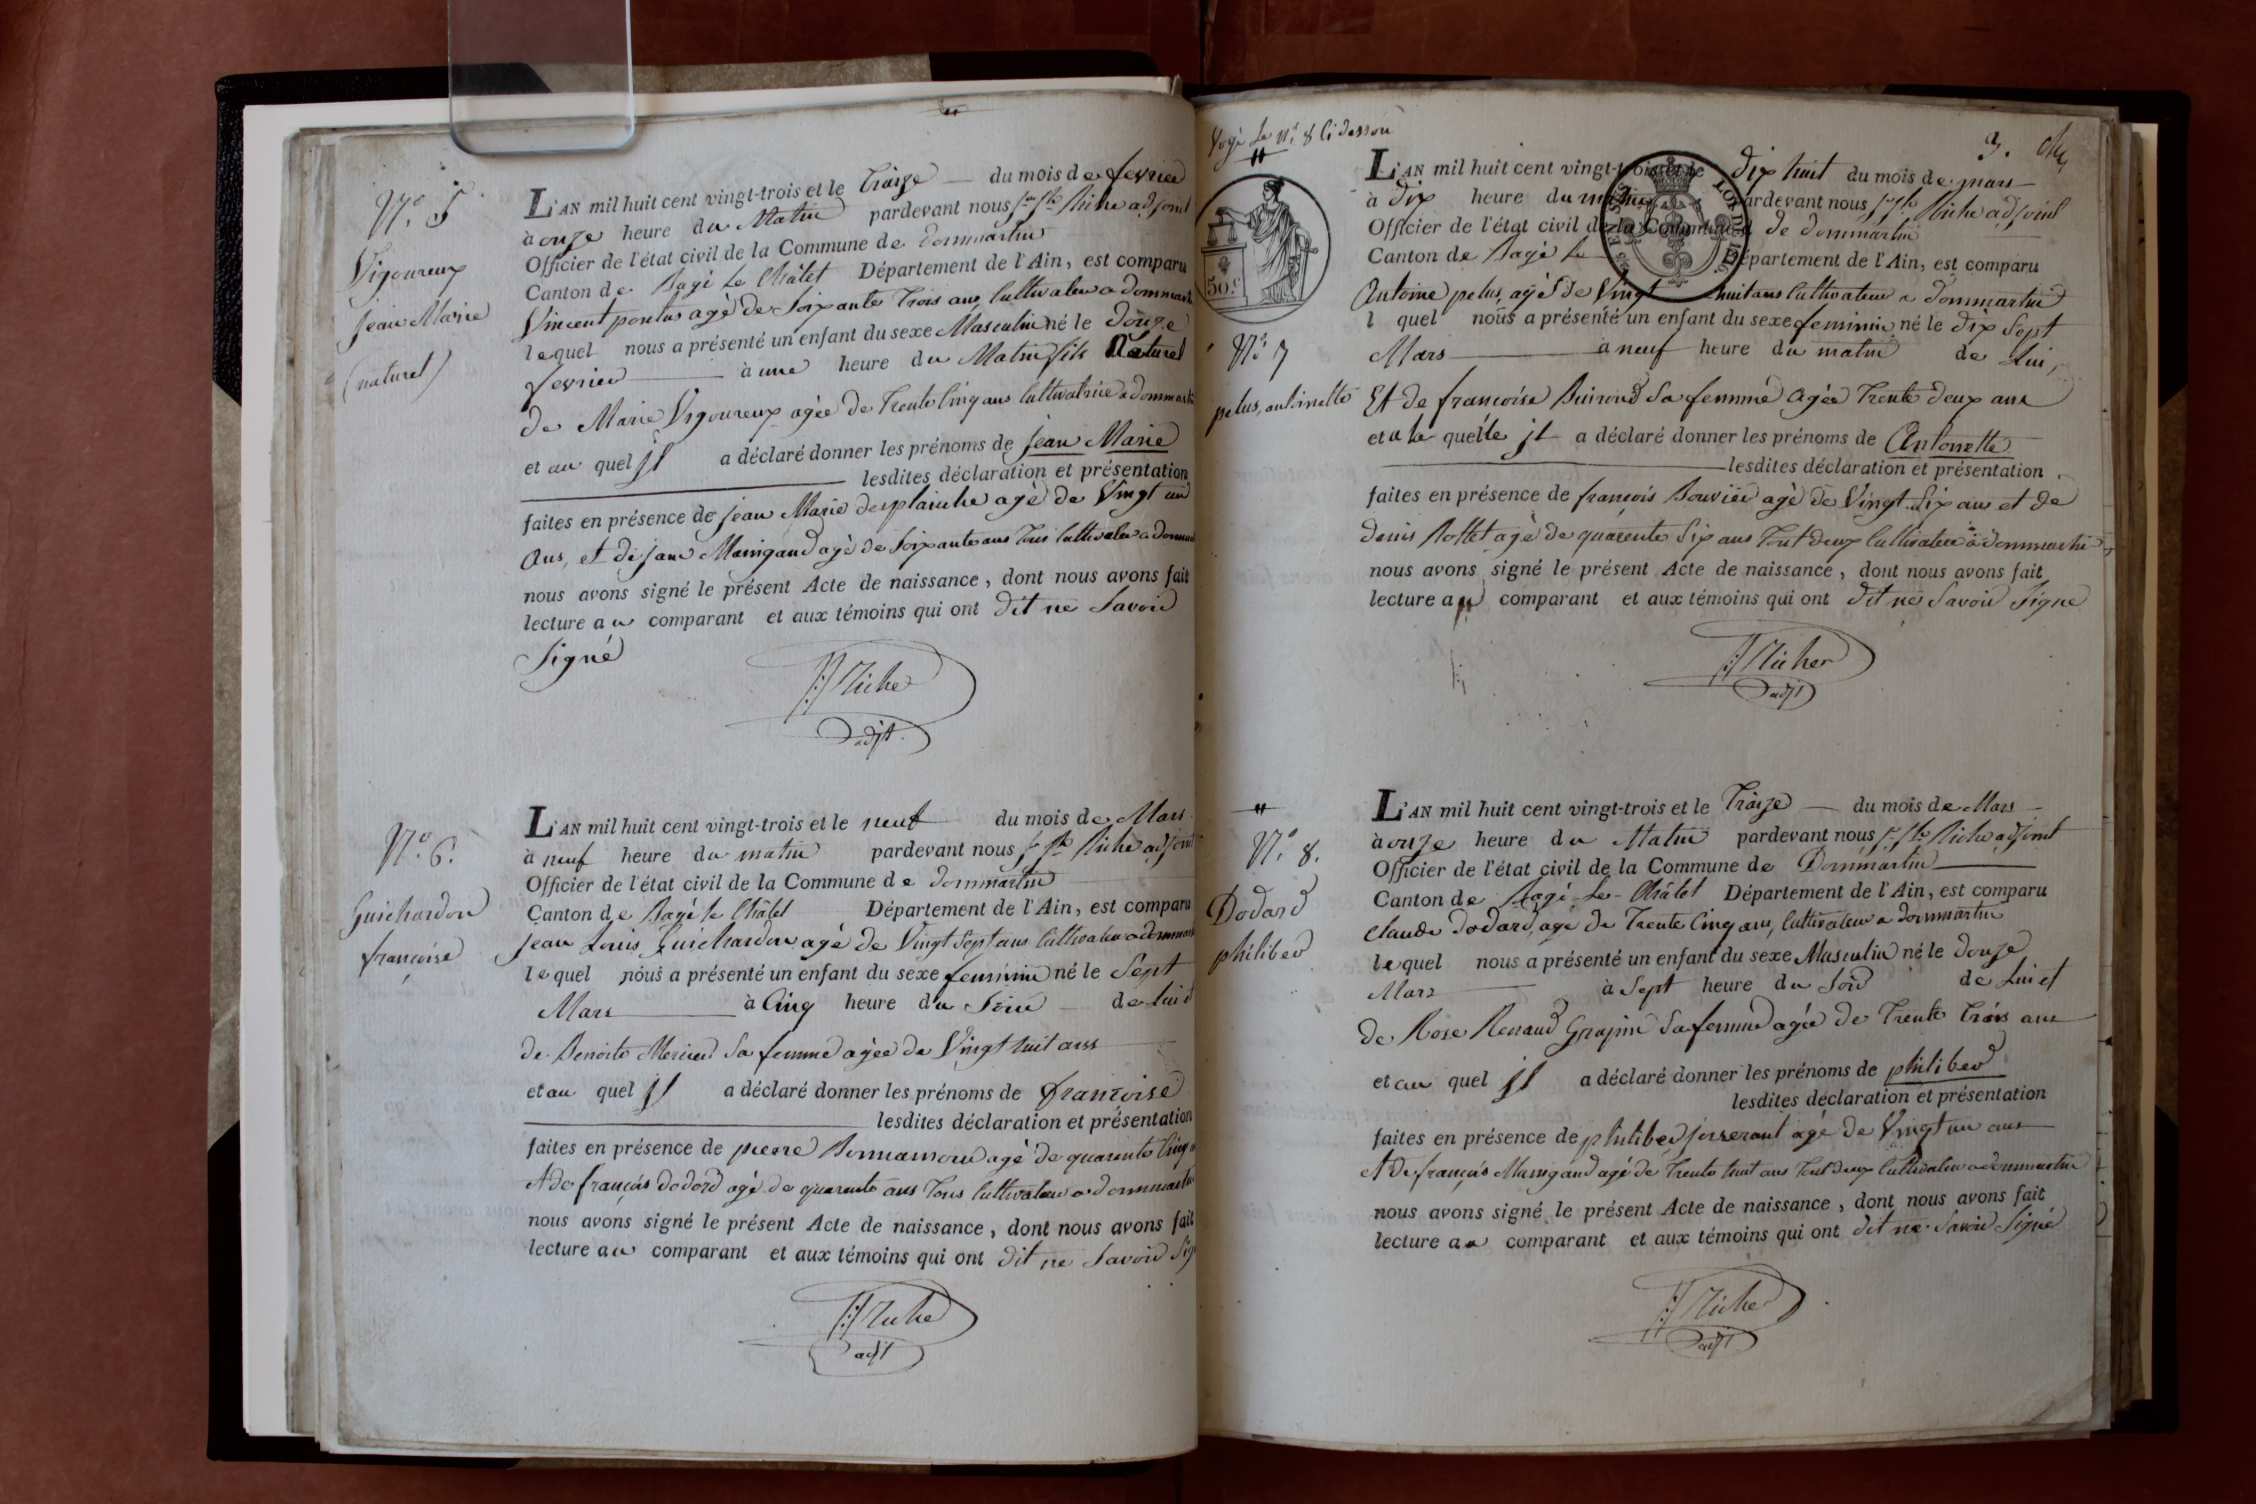 N.° 5
Vigoureux
jean Marie
(naturel)
L'AN mil huit cent vingt-trois et le Traize du mois de fevrier
à onze heure du Matin pardevant nous Riche adjoint
Officier de l'état civil de la Commune de dommartin
Canton de Bagé Le Châtel Département de l'Ain, est comparu
Vincent pontus agé de Soixante Trois ans Cultivateur a dommartin
lequel nous a présenté un enfant du sexe Masculin né le douze
fevrier à une heure du Matin fils Naturel
de Marie Vigoureux agée de Trente Cinq ans Cultivatrice a dommartin
et au quel jl a déclaré donner les prénoms de jean Marie
lesdites déclaration et présentation
faites en présence de jean Marie desplanche agé de Vingt un
ans, et de jean Manigand agé de Soixante ans Tous Cultivateur a dommartin
nous avons signé le présent Acte de naissance, dont nous avons fait
lecture au comparant et aux témoins qui ont dit ne Savoir
Signé
Riche
adjt
N.° 6.
Guichardon
françoise
L'AN mil huit cent vingt-trois et le neuf du mois de Mars
à neuf heure du matin pardevant nous Riche adjoint
Officier de l'état civil de la Commune de dommartin
Canton de Bagé le Châtel Département de l'Ain, est comparu
jean Louis Guichardon agé de Vingt Sept ans Cultivateur a dommartin
lequel nous a présenté un enfant du sexe feminin né le Sept
Mars à Cinq heure du Soir de Lui et
de Benoite Mercier Sa femme agée de Vingt huit ans
et au quel jl a déclaré donner les prénoms de françoise
lesdites déclaration et présentation
faites en présence de pierre agé de quarente Cinq
Et de françois dodard agé de quarente ans Tous Cultivateur a dommartin
nous avons signé le présent Acte de naissance, dont nous avons fait
lecture au comparant et aux témoins qui ont dit ne Savoir
Riche
adjt
Voyé Le N.° 8 Ci dessou
3.
50.c
LOI DE 1816
N.° 7
pelus, antoinette
L'AN mil huit cent vingt-trois et le dix huit du mois de mars
à dix heure du matin pardevant nous Riche adjoint
Officier de l'état civil de la Commune de dommartin
Canton de Bagé Le Département de l'Ain, est comparu
Antoine pelus, agé de Vingt huit ans Cultivateur a dommartin
l quel nous a présenté un enfant du sexe feminin né le dix Sept
Mars à neuf heure du matin de Lui,
Et de françoise Sa femme agée Trente deux ans
et a la quelle jl a déclaré donner les prénoms de Antonette
lesdites déclaration et présentation
faites en présence de françois Bouvier agé de Vingt Six ans et de
denis agé de quarente Six ans Tout deux Cultivateur a dommartin
nous avons signé le présent Acte de naissance, dont nous avons fait
lecture au comparant et aux témoins qui ont dit ne Savoir Signe
Riche
adjt
N.° 8.
Dodard
philiber
L'AN mil huit cent vingt-trois et le Traize du mois de Mars
à onze heure du Matin pardevant nous Riche adjoint
Officier de l'état civil de la Commune de Dommartin
Canton de Bagé Le Châtel Département de l'Ain, est comparu
claude dodard, agé de Trente Cinq ans, Cultivateur a dommartin
lequel nous a présenté un enfant du sexe Masculin né le douze
Mars à Sept heure du Soir de Lui et
de Rose Renaud Grapin Sa femme agée de Trente Trois ans
et au quel jl a déclaré donner les prénoms de philiber
lesdites déclaration et présentation
faites en présence de philiber josserant agé de Vingt un ans
et de françois Manigand agé de Trente huit ans Tout deux Cultivateur a dommartin
nous avons signé le présent Acte de naissance, dont nous avons fait
lecture au comparant et aux témoins qui ont dit ne Savoir Signé
Riche
adjt